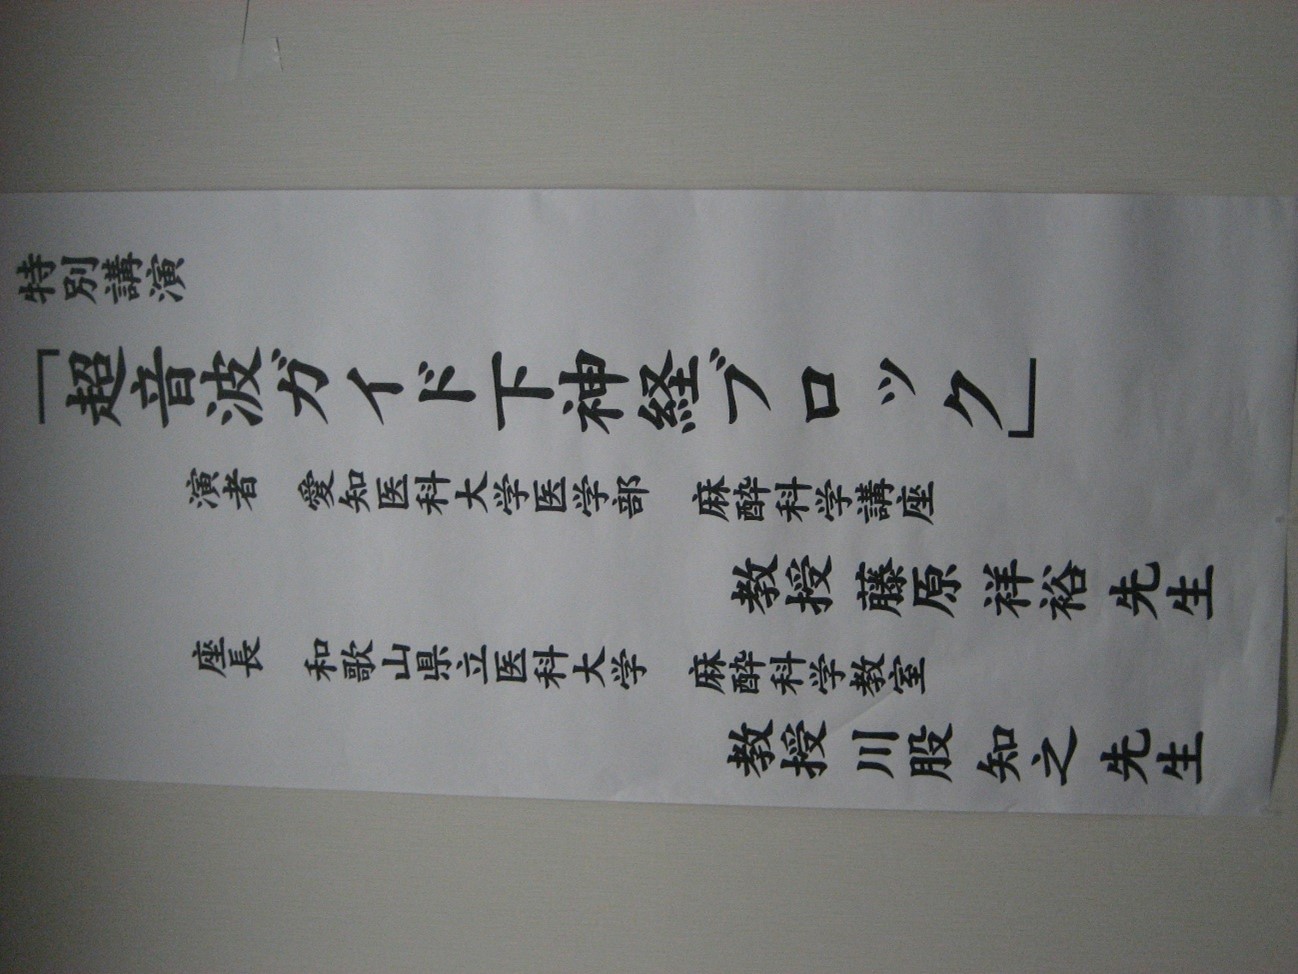 特別講演
「超音波ガイド下神経ブロック」
演者　愛知医科大学医学部　麻酔科学講座
教授 藤原 祥裕 先生
座長　和歌山県立医科大学　麻酔科学教室
教授 川股 知之 先生